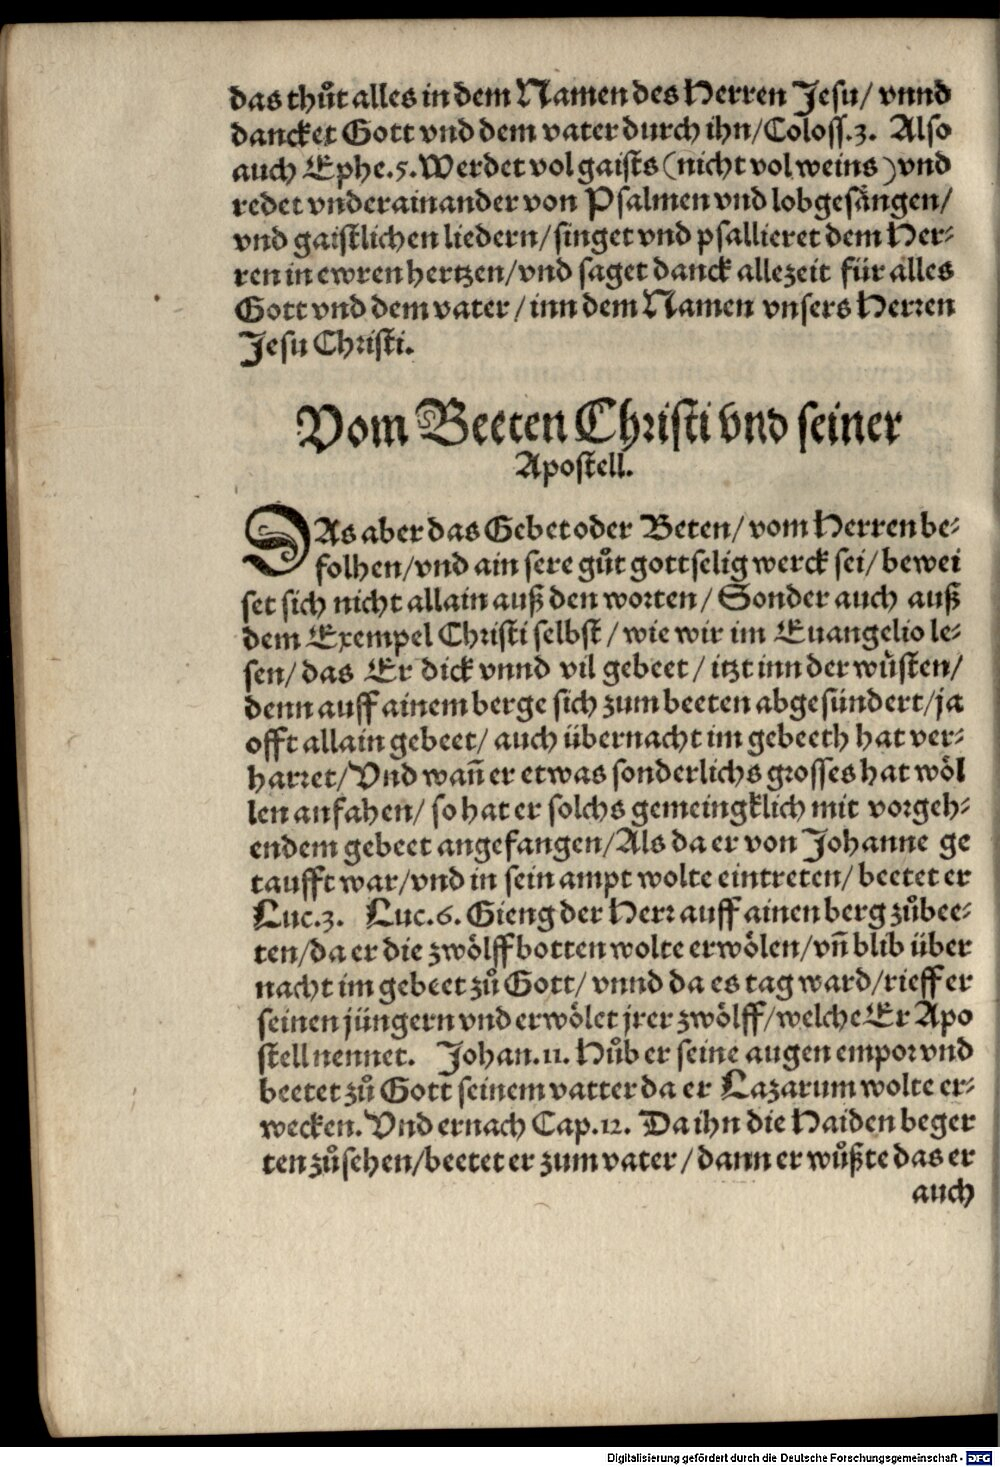 das thůt alles in dem Namen des Herren Jesu/ vnnd
dancket Gott vnd dem vater durch ihn/ Coloss.3. Also
auch Ephe.5. Werdet vol gaists (nicht vol weins) vnd
redet vnderainander von Psalmen vnd lobgesängen/
vnd gaistlichen liedern/ singet vnd psallieret dem Her⸗
ren in ewren hertzen/ vnd saget danck allezeit für alles
Gott vnd dem vater/ inn dem Namen vnsers Herren
Jesu Christi.
Vom Beeten Christi vnd seiner
Apostell.
DAs aber das Gebet oder Beten/ vom Herren be⸗
folhen/ vnd ain sere gůt gottselig werck sei/ bewei
set sich nicht allain auß den worten/ Sonder auch auß
dem Exempel Christi selbst/ wie wir im Euangelio le⸗
sen/ das Er dick vnnd vil gebeet/ itzt inn der wůsten/
denn auff ainem berge sich zum beeten abgesündert/ ja
offt allain gebeet/ auch übernacht im gebeeth hat ver⸗
harret/ Vnd wañ er etwas sonderlichs grosses hat wöl
len anfahen/ so hat er solchs gemeingklich mit vorgeh⸗
endem gebeet angefangen/ Als da er von Johanne ge
taufft war/ vnd in sein ampt wolte eintreten/ beetet er
Luc.3. Luc.6. Gieng der Herr auff ainen berg zůbee⸗
ten/ da er die zwölffbotten wolte erwölen/ vñ blib über
nacht im gebeet zů Gott/ vnnd da es tag ward/ rieff er
seinen jüngern vnd erwölet jrer zwölff/ welche Er Apo
stell nennet. Johan.11. Hůb er seine augen empor vnd
beetet zů Gott seinem vatter da er Lazarum wolte er⸗
wecken. Vnd ernach Cap.12. Da ihn die Haiden beger
ten zůsehen/ beetet er zum vater/ dann er wůßte das er
auch
Digitalisierung gefördert durch die Deutsche Forschungsgemeinschaft - DFG